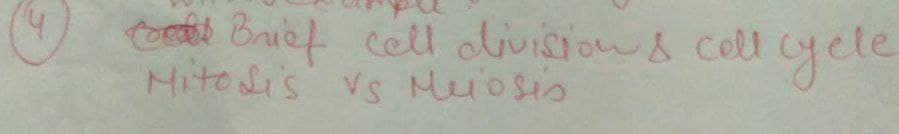 4 Brief cell division & cell cycle
Mitosis vs Meiosis